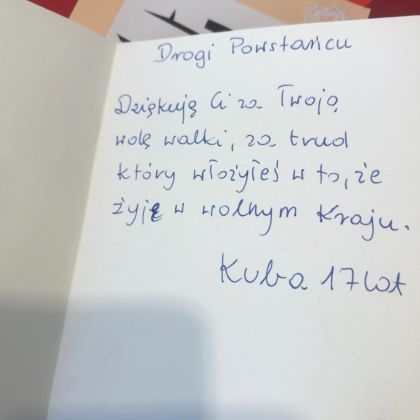 Drogi Powstańcu
Dziękują Ci za Twoją
wolę walki, za trud
który włożyłeś w to, że
żyję w wolnym Kraju.
Kuba 17 lat